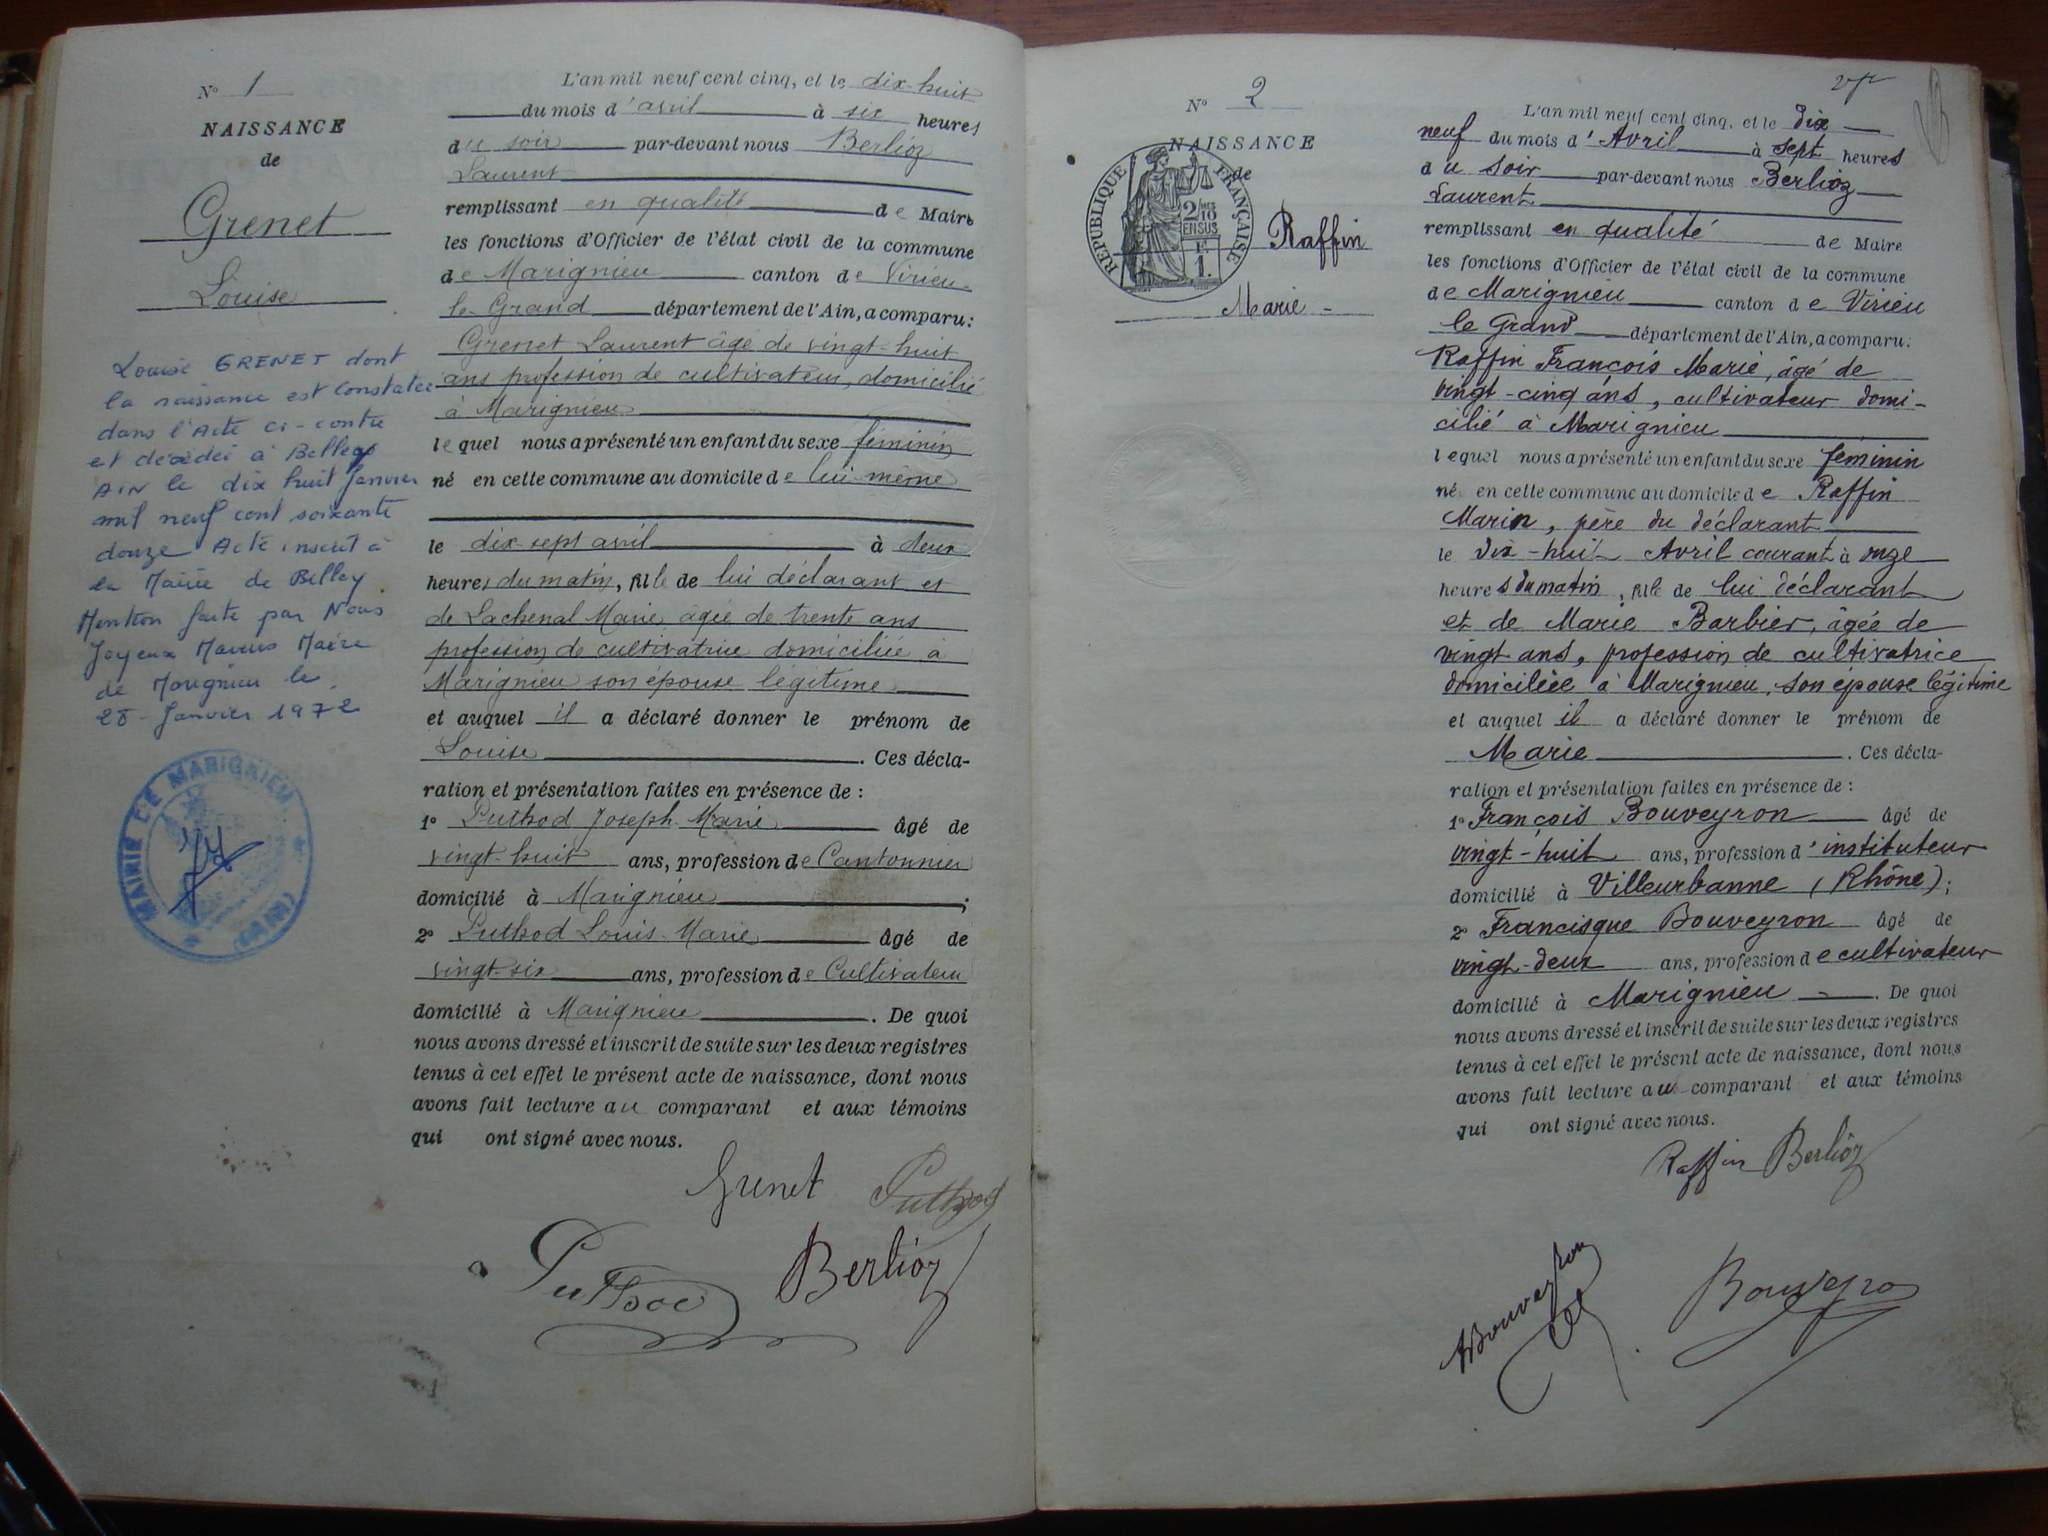 N° 1
NAISSANCE
de
Grenet
Louise
Louise GRENET dont
la naissance est Constatée
dans l'Acte ci-contre
est décédée à Belley
AIN le dix huit Janvier
mil neuf cent soixante
douze Acte inscrit à
la Mairie de Belley.
Mention faite par Nous
Joyeux Marius Maire
de Marignieu le
28 - Janvier 1972
MAIRIE DE MARIGNIEU
(AIN)
L'an mil neuf cent cinq, et le dix-huit
du mois d'avril à six heures
du soir par-devant nous Berlioz
Laurent
remplissant en qualité de Maire
les fonctions d'Officier de l'état civil de la commune
de Marignieu canton de Virieu-
le-Grand département de l'Ain, a comparu:
Grenet Laurent âgé de vingt-huit
ans profession de cultivateur, domicilié
à Marignieu
lequel nous a présenté un enfant du sexe féminin
né en cette commune au domicile de lui-même
le dix-sept avril à deux
heures du matin, fille de lui déclarant et
de Lachenal Marie âgée de trente ans
profession de cultivatrice domiciliée à
Marignieu son épouse légitime
et auquel il a déclaré donner le prénom de
Louise . Ces décla-
ration et présentation faites en présence de :
1° Puthod Joseph-Marie âgé de
vingt-huit ans, profession de Cantonnier
domicilié à Marignieu ;
2° Puthod Louis-Marie âgé de
vingt-six ans, profession de Cultivateur
domicilié à Marignieu . De quoi
nous avons dressé et inscrit de suite sur les deux registres
tenus à cet effet le présent acte de naissance, dont nous
avons fait lecture au comparant et aux témoins
qui ont signé avec nous.
Grenet Puthod
Puthod Berlioz
N° 2
NAISSANCE
de
RÉPUBLIQUE FRANÇAISE
2/10
EN SUS
F.
1.
Raffin
Marie -
L'an mil neuf cent cinq, et le dix
neuf du mois d'Avril à sept heures
du soir par-devant nous Berlioz
Laurent
remplissant en qualité de Maire
les fonctions d'Officier de l'état civil de la commune
de Marignieu canton de Virieu
le Grand département de l'Ain, a comparu:
Raffin François Marie, âgé de
vingt-cinq ans, cultivateur domi-
cilié à Marignieu
lequel nous a présenté un enfant du sexe féminin
né en cette commune au domicile de Raffin
Marin, père du déclarant
le dix-huit Avril courant à onze
heures du matin, fille de lui déclarant
et de Marie Barbier, âgée de
vingt ans, profession de cultivatrice
domiciliée à Marignieu, son épouse légitime
et auquel il a déclaré donner le prénom de
Marie . Ces décla-
ration et présentation faites en présence de :
1° François Bouveyron âgé de
vingt-huit ans, profession d'instituteur
domicilié à Villeurbanne (Rhône);
2° Francisque Bouveyron âgé de
vingt-deux ans, profession de cultivateur
domicilié à Marignieu . De quoi
nous avons dressé et inscrit de suite sur les deux registres
tenus à cet effet le présent acte de naissance, dont nous
avons fait lecture au comparant et aux témoins
qui ont signé avec nous.
Raffin Berlioz
Bouveyron
Bouveyro